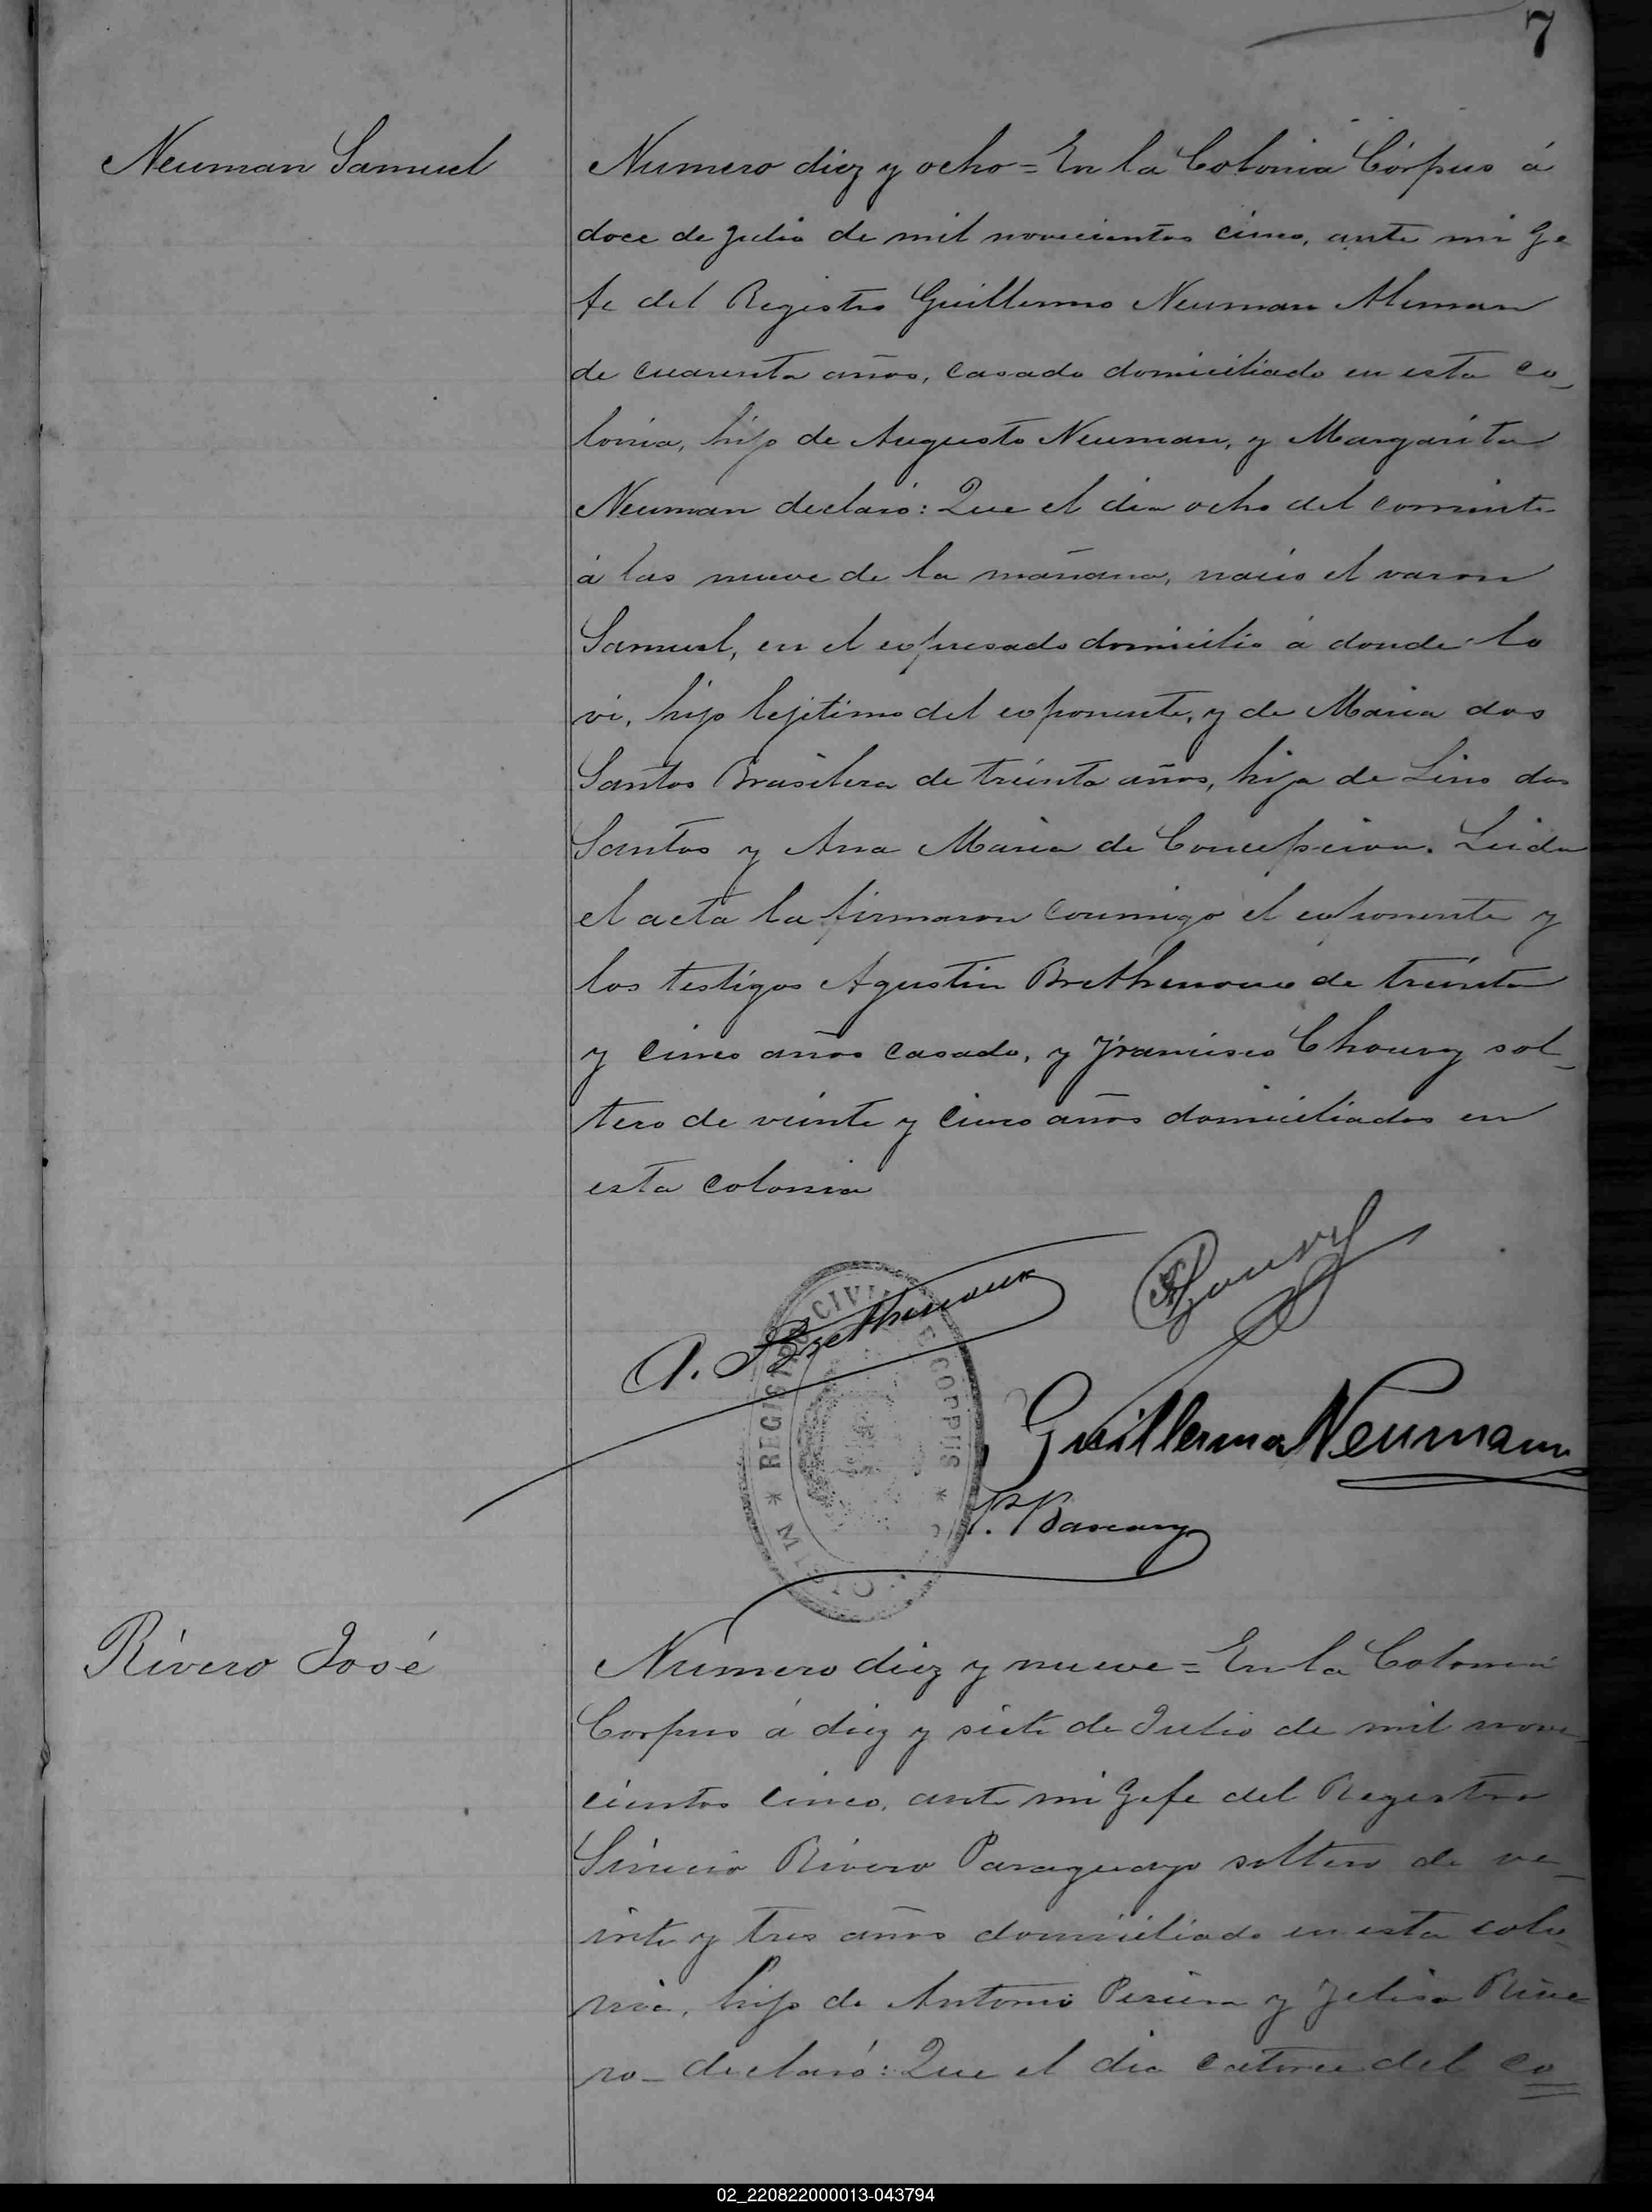 7
Neuman Samuel
Numero diez y ocho = En la Colonia Córpus á
doce de Julio de mil novecientos cinco, ante mi Ge
fe del Registro Guillermo Neuman Aleman
de cuarenta años, casado domiciliado en esta co_
lonia, hijo de Augusto Neuman, y Margarita
Neuman declaró: Que el dia ocho del corriente
á las nueve de la mañana, nació el varon
Samuel, en el expresado domicilio á donde lo
vi, hijo lejitimo del exponente, y de Maria dos
Santos Brasilera de treinta años, hija de Lino dos
Santos y Ana Maria de Concepcion. Leida
el acta la firmaron conmigo el exponente y
los testigos Agustin Brethenoux de treinta
y cinco años casado, y Francisco Chouvy sol_
tero de veinte y cinco años domiciliados en
esta colonia
A. Brethenoux
Chouvy
REGISTRO CIVIL DE CORPUS * MISIONES *
Guillermo Neumann
Rivero José
Numero diez y nueve = En la Colonia
Corpus á diez y siete de Julio de mil nove_
cientos cinco, ante mi Gefe del Registro
Rivero Paraguayo soltero de ve_
inte y tres años domiciliado en esta colo_
nia, hijo de Antonio y Felisa Rive
ro_ declaró: Que el dia catorce del co
02_220822000013-043794